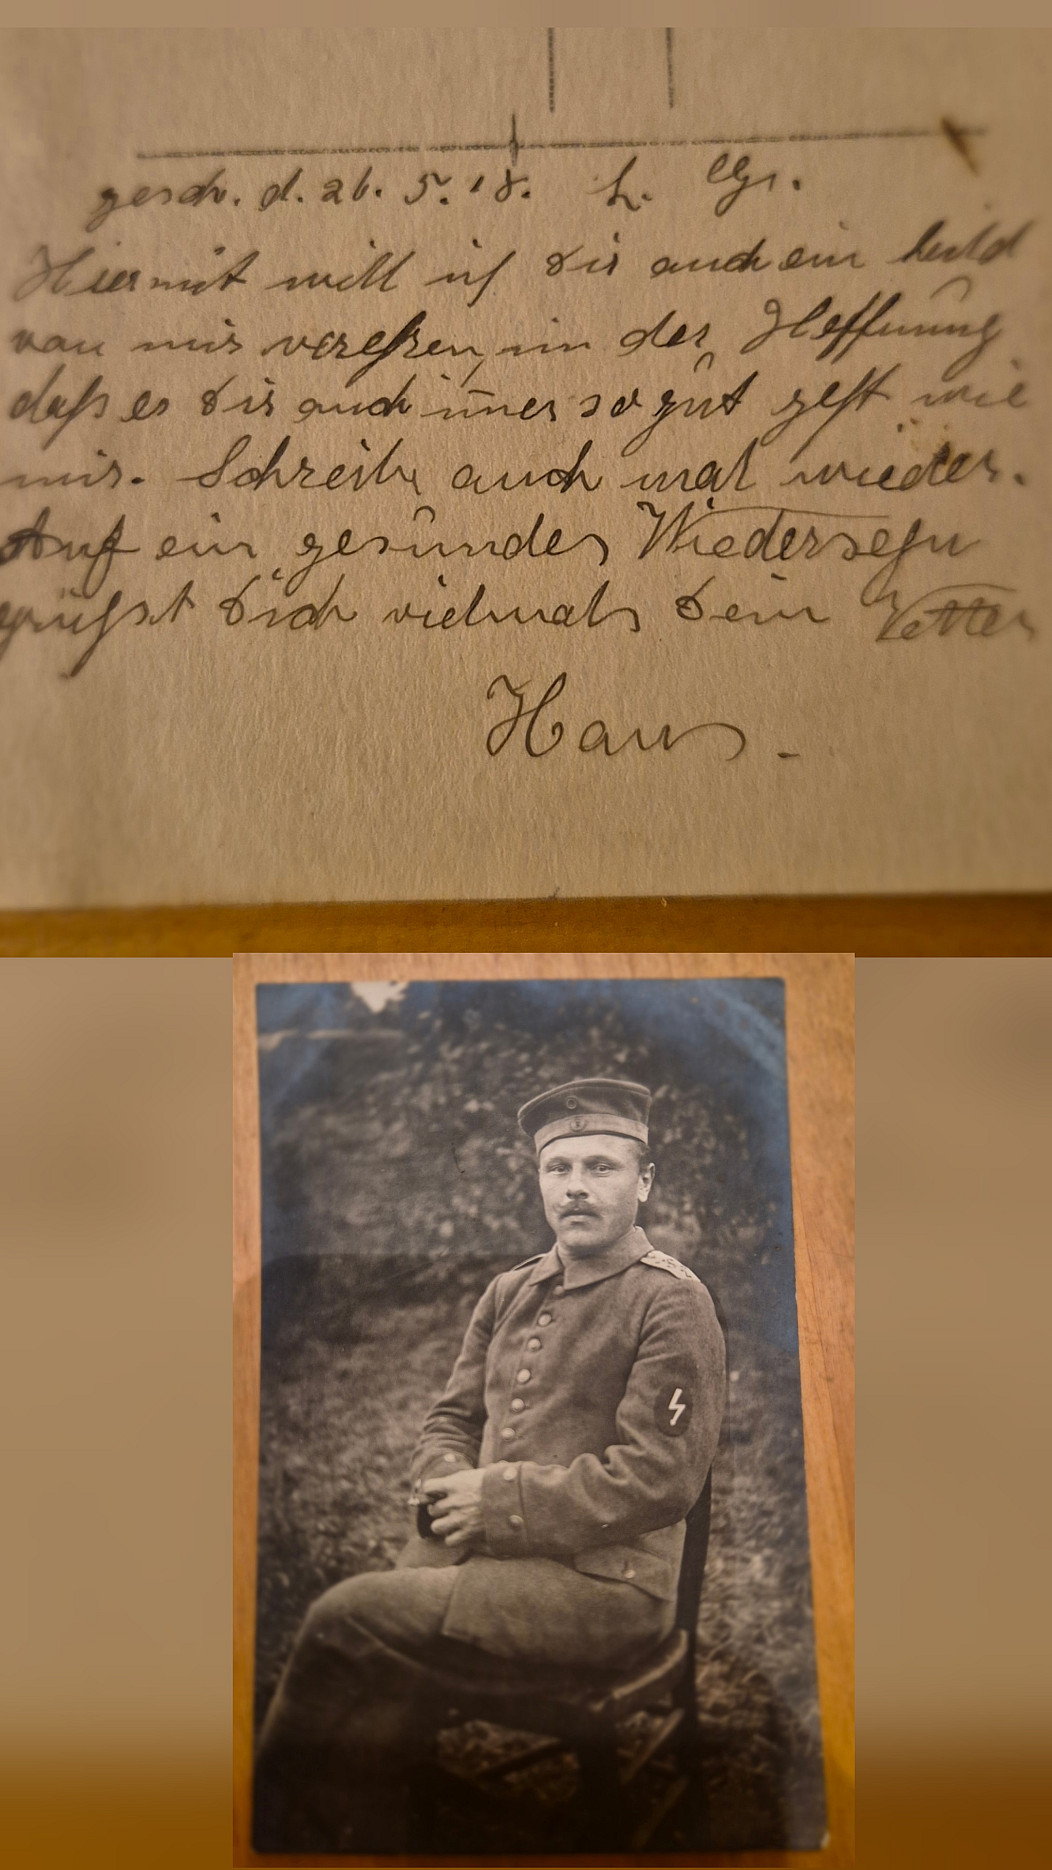 gesch. d. 26. 5. 18. L.
Hiermit will ich Dir auch ein bild
von mir verehren, in der Hoffnung
daß es Dir auch im̄er so gut geht wie
mir. Schreibe auch mal wieder.
Auf ein gesundes Wiedersehn
grüßt Dich vielmals Dein Vetter
Hans.